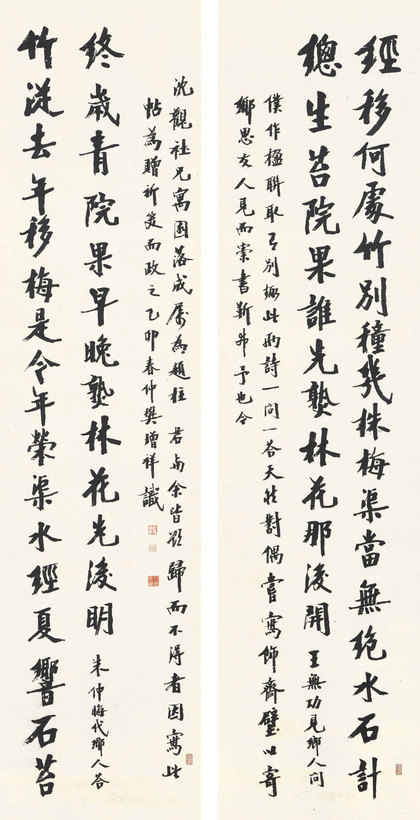 經移何處竹別種幾株梅渠當無絕水石計
總生苔院果誰先熟林花那後開 王無功見鄉人問
僕作楹聯取別此兩詩一問一答天對偶嘗寫飾齋壁以寄
鄉思友人見而索書靳弗予也今
竹從去年移梅是今年榮渠水經夏響石苔
終歲青院果早晚熟林花先後明 朱仲晦代鄉人答
沈觀社兄寓園落成屬為題柱 君與余皆欲歸而不得者因寫此
帖為贈祈笑而政之乙卯春仲樊增祥識